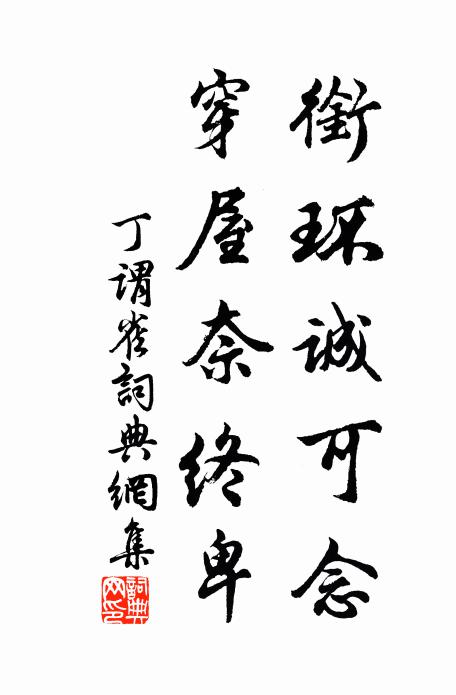 銜环誠可念
穿屋奈終卑
丁謂雀詞典網集
詞典網印